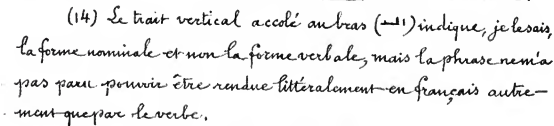 (14) Le trait vertical accolé au bras () indique, je le sais,
la forme nominale et non la forme verbale, mais la phrase ne m'a
pas paru pouvoir être rendue littéralement en français autre-
ment que par le verbe.